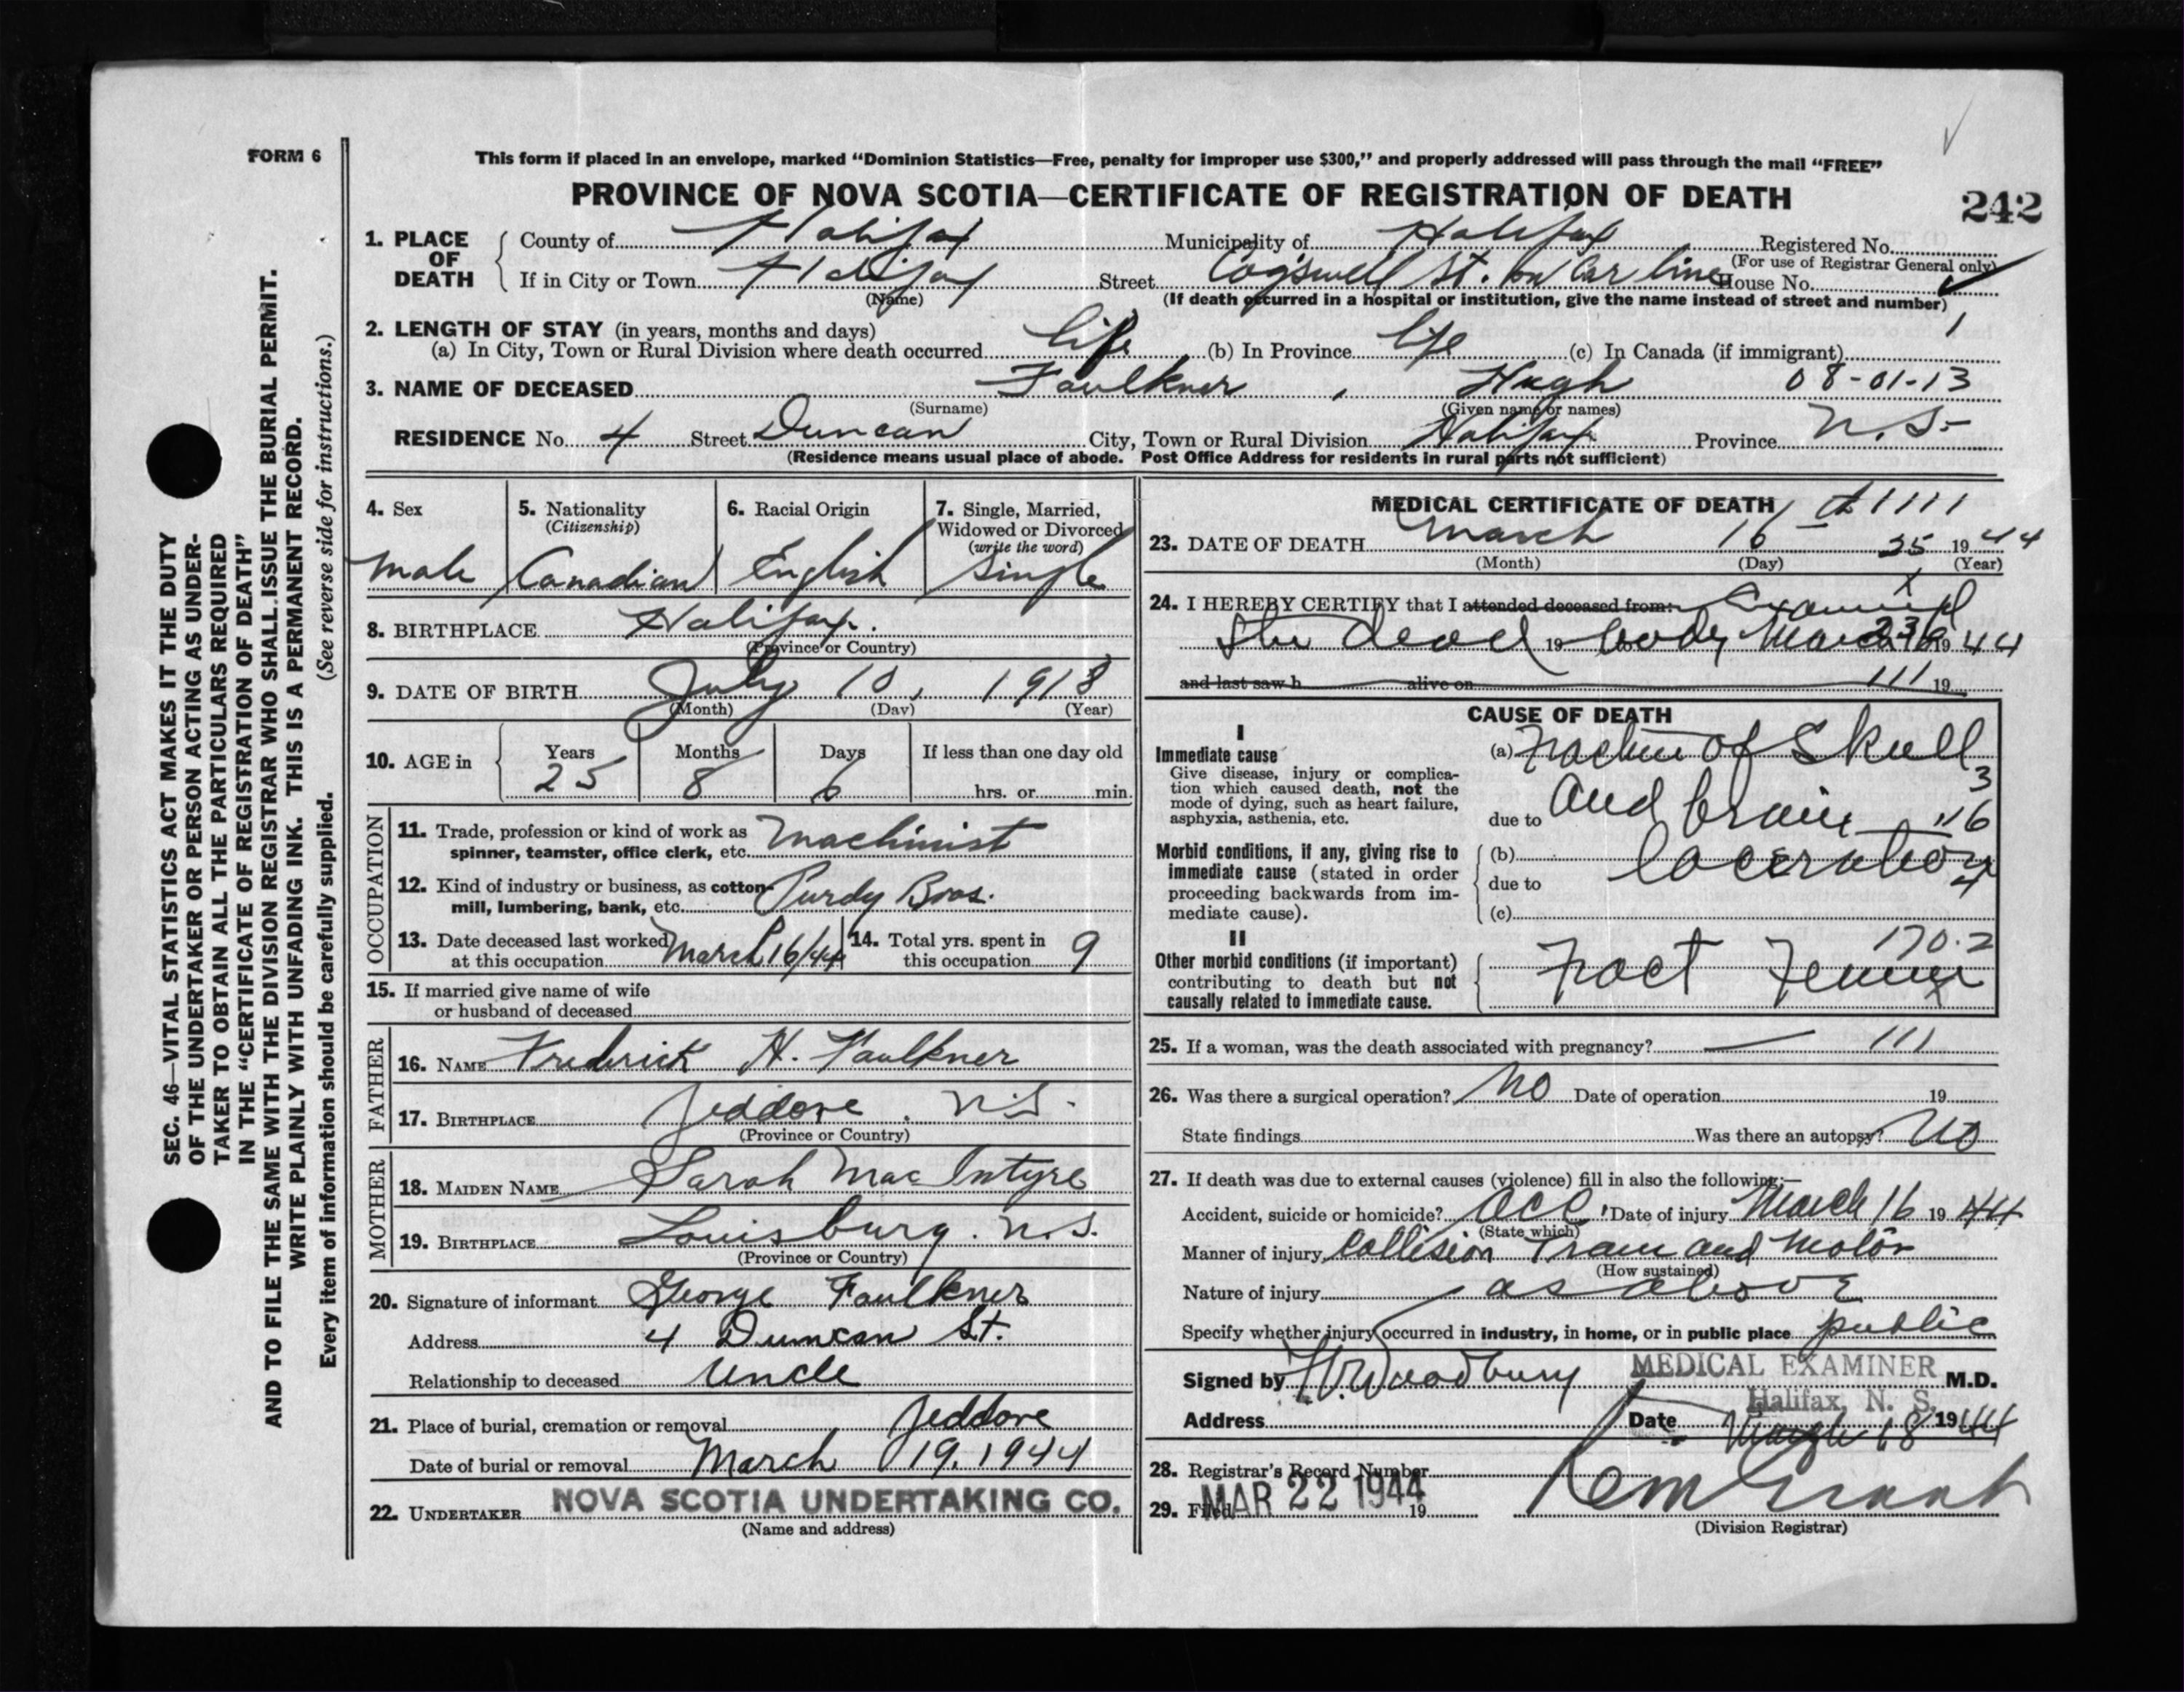 FORM 6
This form if placed in an envelope, marked “Dominion Statistics—Free, penalty for improper use $300,” and properly addressed will pass through the mail “FREE”
PROVINCE OF NOVA SCOTIA—CERTIFICATE OF REGISTRATION OF DEATH
242
1. PLACE OF DEATH
County of Halifax Municipality of Halifax Registered No.
(For use of Registrar General only)
If in City or Town Halifax Street Cogswell St. on Car line House No.
(Name) (If death occurred in a hospital or institution, give the name instead of street and number)
2. LENGTH OF STAY (in years, months and days) 1
(a) In City, Town or Rural Division where death occurred life (b) In Province life (c) In Canada (if immigrant)
3. NAME OF DECEASED Faulkner, Hugh 08-01-13
(Surname) (Given name or names)
RESIDENCE No. 4 Street Duncan City, Town or Rural Division Halifax Province N.S.
(Residence means usual place of abode. Post Office Address for residents in rural parts not sufficient)
4. Sex
male
5. Nationality
(Citizenship)
Canadian
6. Racial Origin
English
7. Single, Married, Widowed or Divorced
(write the word)
Single
8. BIRTHPLACE Halifax.
(Province or Country)
9. DATE OF BIRTH July 10, 1918
(Month) (Day) (Year)
10. AGE in
Years Months Days If less than one day old
25 8 6 hrs. or min.
OCCUPATION
11. Trade, profession or kind of work as
spinner, teamster, office clerk, etc. Machinist
12. Kind of industry or business, as cotton-
mill, lumbering, bank, etc. Purdy Bros.
13. Date deceased last worked
at this occupation March 16/44
14. Total yrs. spent in
this occupation 9
15. If married give name of wife
or husband of deceased
FATHER
16. NAME Frederick H. Faulkner
17. BIRTHPLACE Jeddore, N.S.
(Province or Country)
MOTHER
18. MAIDEN NAME Sarah MacIntyre
19. BIRTHPLACE Louisburg. N.S.
(Province or Country)
20. Signature of informant George Faulkner
Address 4 Duncan St.
Relationship to deceased Uncle
21. Place of burial, cremation or removal Jeddore
Date of burial or removal March 19, 1944
22. UNDERTAKER NOVA SCOTIA UNDERTAKING CO.
(Name and address)
MEDICAL CERTIFICATE OF DEATH 1111
23. DATE OF DEATH March 16 25 1944
(Month) (Day) (Year)
24. I HEREBY CERTIFY that I attended deceased from: Examined
the dead 19 body March 16 1944
and last saw h alive on 111 19
CAUSE OF DEATH
I
Immediate cause
Give disease, injury or complica-
tion which caused death, not the
mode of dying, such as heart failure,
asphyxia, asthenia, etc.
(a) Fracture of Skull
3
due to and brain 6
Morbid conditions, if any, giving rise to
immediate cause (stated in order
proceeding backwards from im-
mediate cause).
(b) laceration
due to 4
(c)
II
Other morbid conditions (if important)
contributing to death but not
causally related to immediate cause.
170.2
Fract Femur
25. If a woman, was the death associated with pregnancy? — 111
26. Was there a surgical operation? No Date of operation 19
State findings Was there an autopsy? No
27. If death was due to external causes (violence) fill in also the following:—
Accident, suicide or homicide? Acc. Date of injury March 16 1944
(State which)
Manner of injury Collision Tram and Motor
(How sustained)
Nature of injury as above
Specify whether injury occurred in industry, in home, or in public place public
Signed by Woodbury MEDICAL EXAMINER M.D.
Halifax, N. S.
Address Date March 18 1944
28. Registrar's Record Number
29. Filed MAR 22 1944 19
(Division Registrar)
SEC. 46—VITAL STATISTICS ACT MAKES IT THE DUTY
OF THE UNDERTAKER OR PERSON ACTING AS UNDER-
TAKER TO OBTAIN ALL THE PARTICULARS REQUIRED
IN THE “CERTIFICATE OF REGISTRATION OF DEATH”
AND TO FILE THE SAME WITH THE DIVISION REGISTRAR WHO SHALL ISSUE THE BURIAL PERMIT.
WRITE PLAINLY WITH UNFADING INK. THIS IS A PERMANENT RECORD.
Every item of information should be carefully supplied. (See reverse side for instructions.)